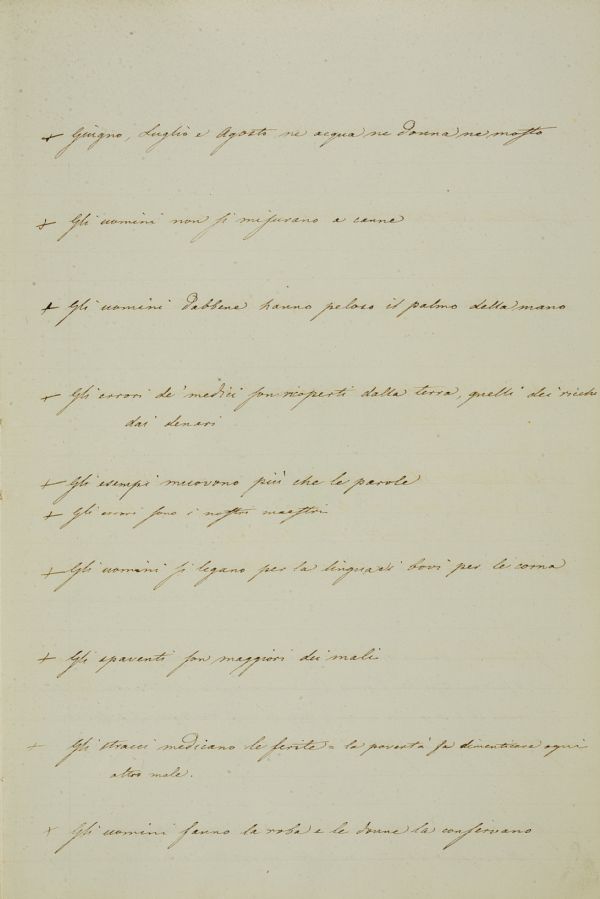 + Giugno, Luglio e Agosto ne acqua ne donna ne mosto
+ Gli uomini non si misurano a canne
+ Gli uomini dabbene hanno peloso il palmo della mano
+ Gli errori de' medici son ricoperti dalla terra, quelli dei ricchi
dai denari
+ Gli esempi muovono più che le parole
+ Gli errori sono i nostri maestri
+ Gli uomini si legano per la lingua e i bovi per le corna
+ Gli spaventi son maggiori dei mali
+ Gli stracci medicano le ferite = la povertà fa dimenticare ogni
altro male.
+ Gli uomini fanno la roba e le donne la conservano